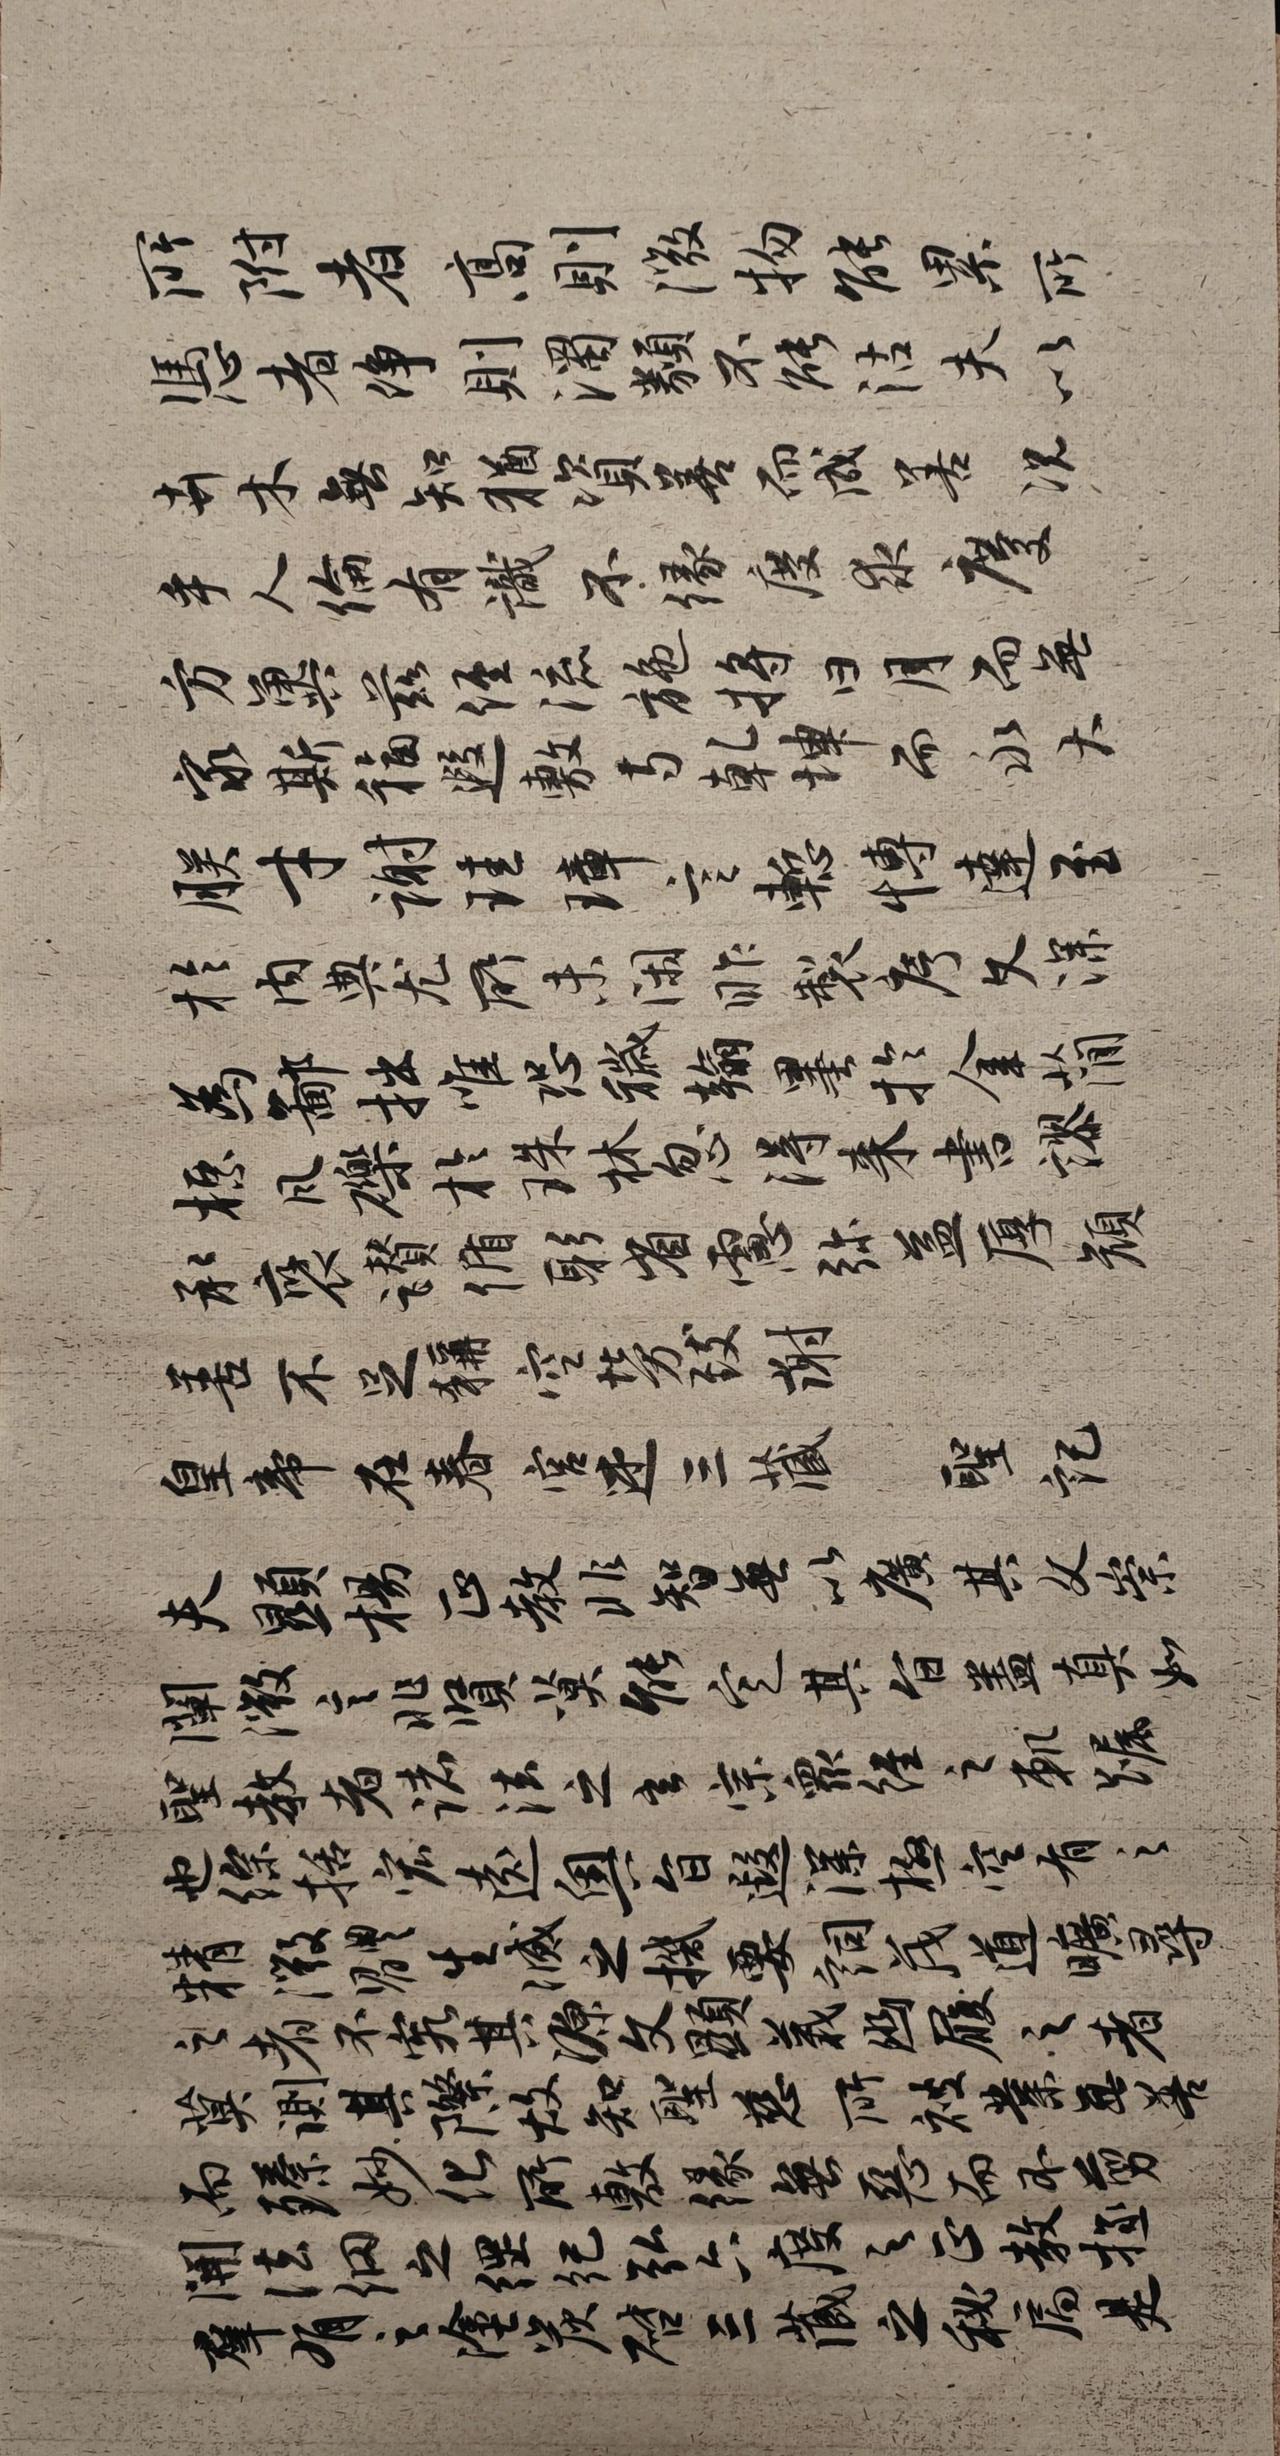 所附者高則微物能累所
憑者净則濁類不能沾夫以
卉木無知猶資善而成善況
乎人倫有識不緣慶求慶
方冀茲經流施将日月而無
窮斯福遐敷与乾坤而永大
朕才謝珪璋言慙博達至
於内典尤所未閑昨製序文深
為鄙拙唯恐穢翰墨於金簡
標瓦礫於珠林忽得来書謬
承褒讚循躬省慮弥益厚顏
善不足稱空勞致謝
皇帝在春宮述三藏 聖記
夫顯揚正教非智無以廣其文崇
闡微言非賢莫能定其旨蓋真如
聖教者諸法之玄宗眾經之軌躅
也綜括宏遠奥旨遐深極空有之
精微體生滅之機要詞茂道曠尋
之者不究其源文顯義幽履之者
莫測其際故知聖慈所被業無善
而臻妙化所敷緣無惡而不翦
開法網之綱紀弘六度之正教拯
群有之塗炭啓三藏之秘扃是